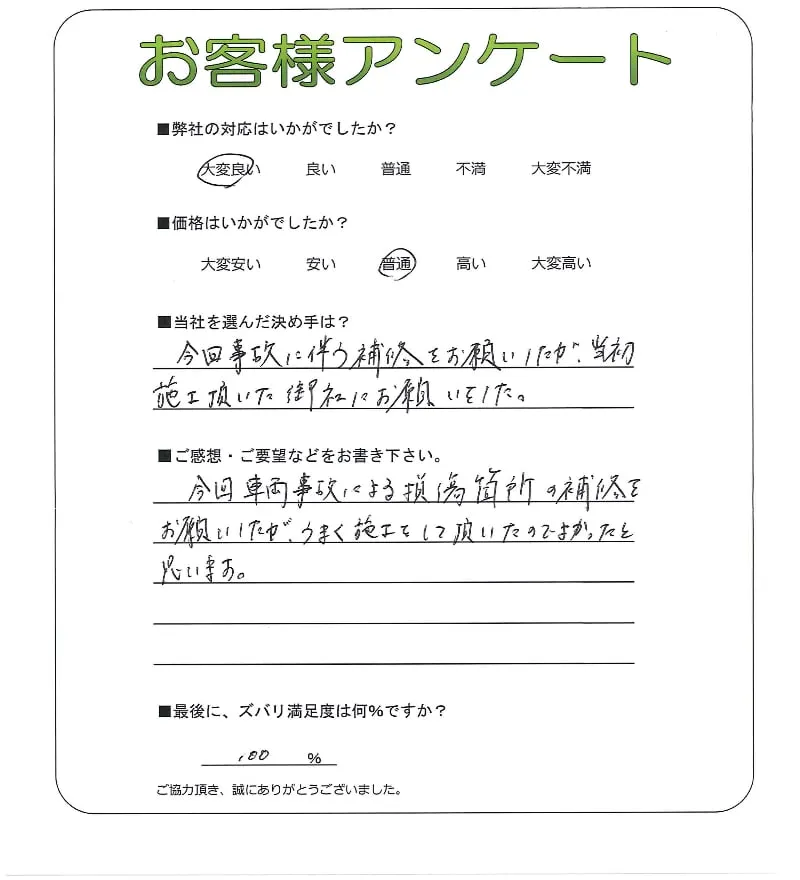 お客様アンケート
■弊社の対応はいかがでしたか？
大変良い 良い 普通 不満 大変不満
■価格はいかがでしたか？
大変安い 安い 普通 高い 大変高い
■当社を選んだ決め手は？
今回事故に伴う補修をお願いしたが、当初
施工頂いた御社にお願いをした。
■ご感想・ご要望などをお書き下さい。
今回車両事故による損傷箇所の補修を
お願いしたが、うまく施工をして頂いたのでよかったと
思います。
■最後に、ズバリ満足度は何%ですか？
100 %
ご協力頂き、誠にありがとうございました。